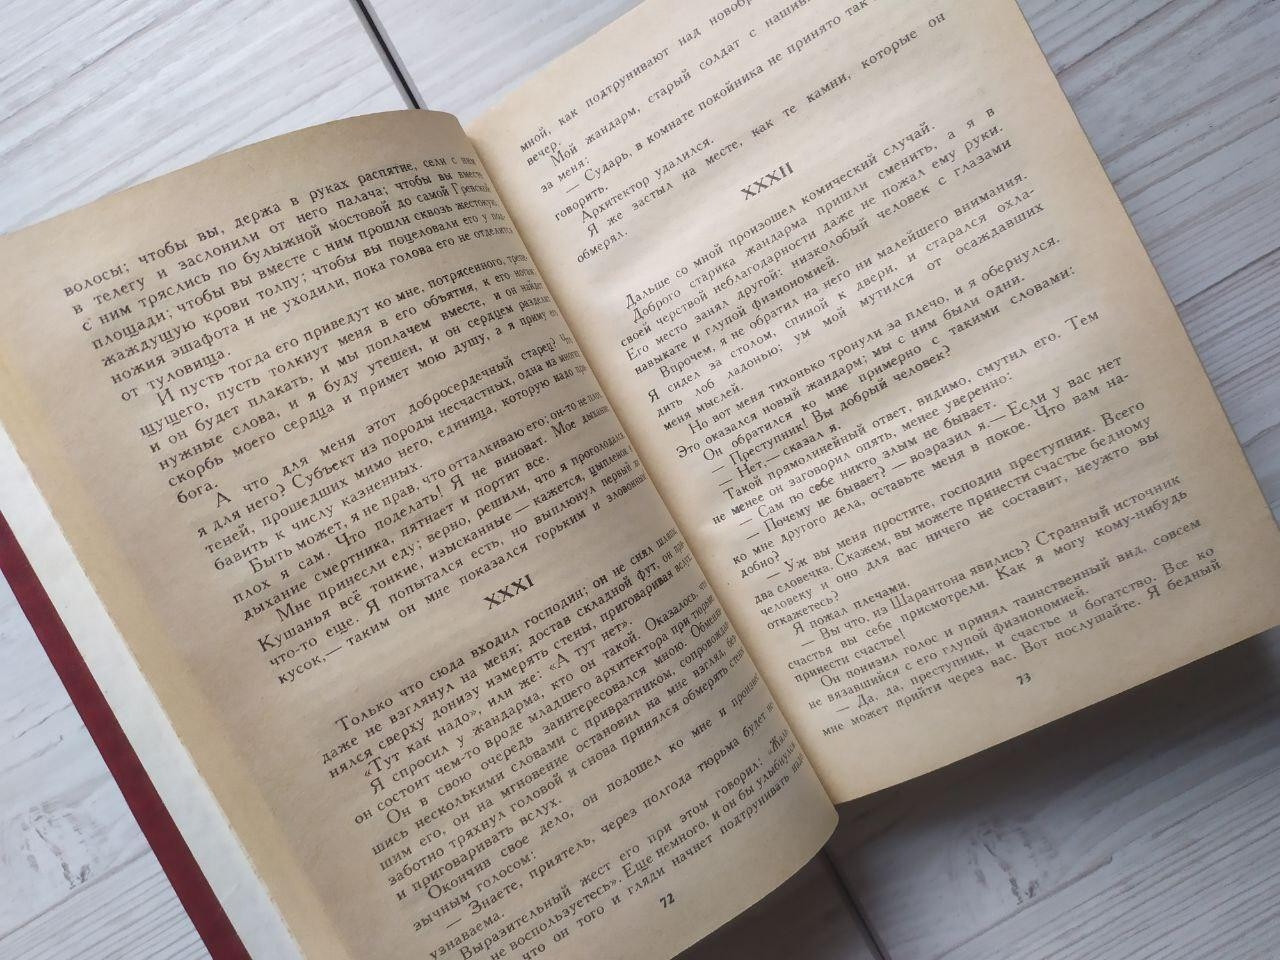 волосы; чтобы вы, держа в руках распятие, сели с ним
в телегу и заслонили от него палача; чтобы вы вместе
с ним тряслись по булыжной мостовой до самой Гревской
площади; чтобы вы вместе с ним прошли сквозь жестокую,
жаждущую крови толпу; чтобы вы поцеловали его у под-
ножия эшафота и не уходили, пока голова его не отделится
от туловища.
И пусть тогда его приведут ко мне, потрясенного, трепе-
щущего, пусть толкнут меня в его объятия, к его ногам;
и он будет плакать, и мы поплачем вместе, и он найдет
нужные слова, и я буду утешен, и он сердцем разделит
скорбь моего сердца и примет мою душу, а я приму его
бога.
А что для меня этот добросердечный старец? Что
я для него? Субъект из породы несчастных, одна из многих
теней, прошедших мимо него, единица, которую надо при-
бавить к числу казненных.
Быть может, я не прав, что отталкиваю его; он-то не плох,
плох я сам. Что поделать! Я не виноват. Мое дыхание,
дыхание смертника, пятнает и портит все.
Мне принесли еду; верно, решили, что я проголодался.
Кушанья всё тонкие, изысканные — кажется, цыпленок и
что-то еще. Я попытался есть, но выплюнул первый же
кусок, — таким он мне показался горьким и зловонным.
XXXI
Только что сюда входил господин; он не снял шляпы,
даже не взглянул на меня; достав складной фут, он при-
нялся сверху донизу измерять стены, приговаривая вслух:
«Тут как надо», или же: «А тут нет».
Я спросил у жандарма, кто он такой. Оказалось, что
он состоит чем-то вроде младшего архитектора при тюрьме.
Он в свою очередь заинтересовался мною. Обменяв-
шись несколькими словами с привратником, сопровождав-
шим его, он на мгновение остановил на мне взгляд, без-
заботно тряхнул головой и снова принялся обмерять стены
и приговаривать вслух.
Окончив свое дело, он подошел ко мне и произнес
зычным голосом:
— Знаете, приятель, через полгода тюрьма будет не-
узнаваема.
Выразительный жест его при этом говорил: «Жаль,
не воспользуетесь». Еще немного, и он бы улыбнулся.
что он того и гляди начнет подтрунивать надо
72
мной, как подтрунивают над новобр
вечер.
Мой жандарм, старый солдат с нашив
за меня:
— Сударь, в комнате покойника не принято так
говорить.
Архитектор удалился.
Я же застыл на месте, как те камни, которые он
обмерял.
XXXII
Дальше со мной произошел комический случай.
Доброго старика жандарма пришли сменить, а я в
своей черствой неблагодарности даже не пожал ему руки.
Его место занял другой: низколобый человек с глазами
навыкате и глупой физиономией.
Впрочем, я не обратил на него ни малейшего внимания.
Я сидел за столом, спиной к двери, и старался охла-
дить лоб ладонью; ум мой мутился от осаждавших
меня мыслей.
Но вот меня тихонько тронули за плечо, и я обернулся.
Это оказался новый жандарм; мы с ним были одни.
Он обратился ко мне примерно с такими словами:
— Преступник! Вы добрый человек?
— Нет, — сказал я.
Такой прямолинейный ответ, видимо, смутил его. Тем
не менее он заговорил опять, менее уверенно:
— Сам по себе никто злым не бывает.
— Почему не бывает? — возразил я. — Если у вас нет
ко мне другого дела, оставьте меня в покое. Что вам на-
добно?
— Уж вы меня простите, господин преступник. Всего
два словечка. Скажем, вы можете принести счастье бедному
человеку и оно для вас ничего не составит, неужто вы
откажетесь?
Я пожал плечами.
— Вы что, из Шарантона явились? Странный источник
счастья вы себе присмотрели. Как я могу кому-нибудь
принести счастье!
Он понизил голос и принял таинственный вид, совсем
не вязавшийся с его глупой физиономией.
— Да, да, преступник, и счастье и богатство. Все ко
мне может прийти через вас. Вот послушайте. Я бедный
73